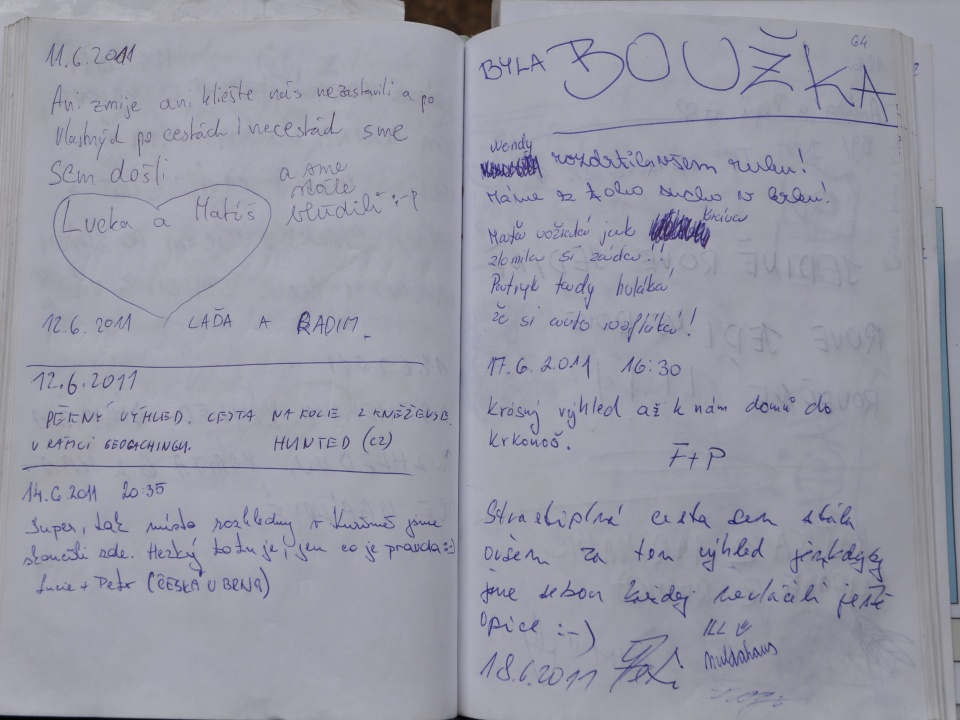 11.6.2011
Ani zmije ani klieště nás nezastavili a po
vlastnýd po cestách i necestád sme
sem došli.
a sme
stále
bludili :-?
Lucka a Matúš
12.6.2011 LAĎA A RADIM
12.6.2011
PĚKNÝ VÝHLED. CESTA NA KOLE Z KNĚŽEVSE
V RÁMCI GEOCACHINGU. HUNTED (CZ)
14.6.2011 20:35
Super, tak místo rozhledny v jsme
skončili zde. Hezký to tu je, jen co je pravda :-)
Lucie + Petr (ČESKÁ U BRNA)
64
BYLA BOUŽKA
Wendy
rozdrtila všem ruku!
Máme z toho sucho v krku!
Maťa vožralá jak Kráva
zlomila si záda!!
Patryk tady huláká
že si auto
17.6.2011 16:30
Krásný výhled až k nám domů do
Krkonoš.
F+P
Strastiplná cesta sem stála
ovšem za ten výhled
jsme sebou každej nevláčeli ještě
opice :-)
18.6.2011